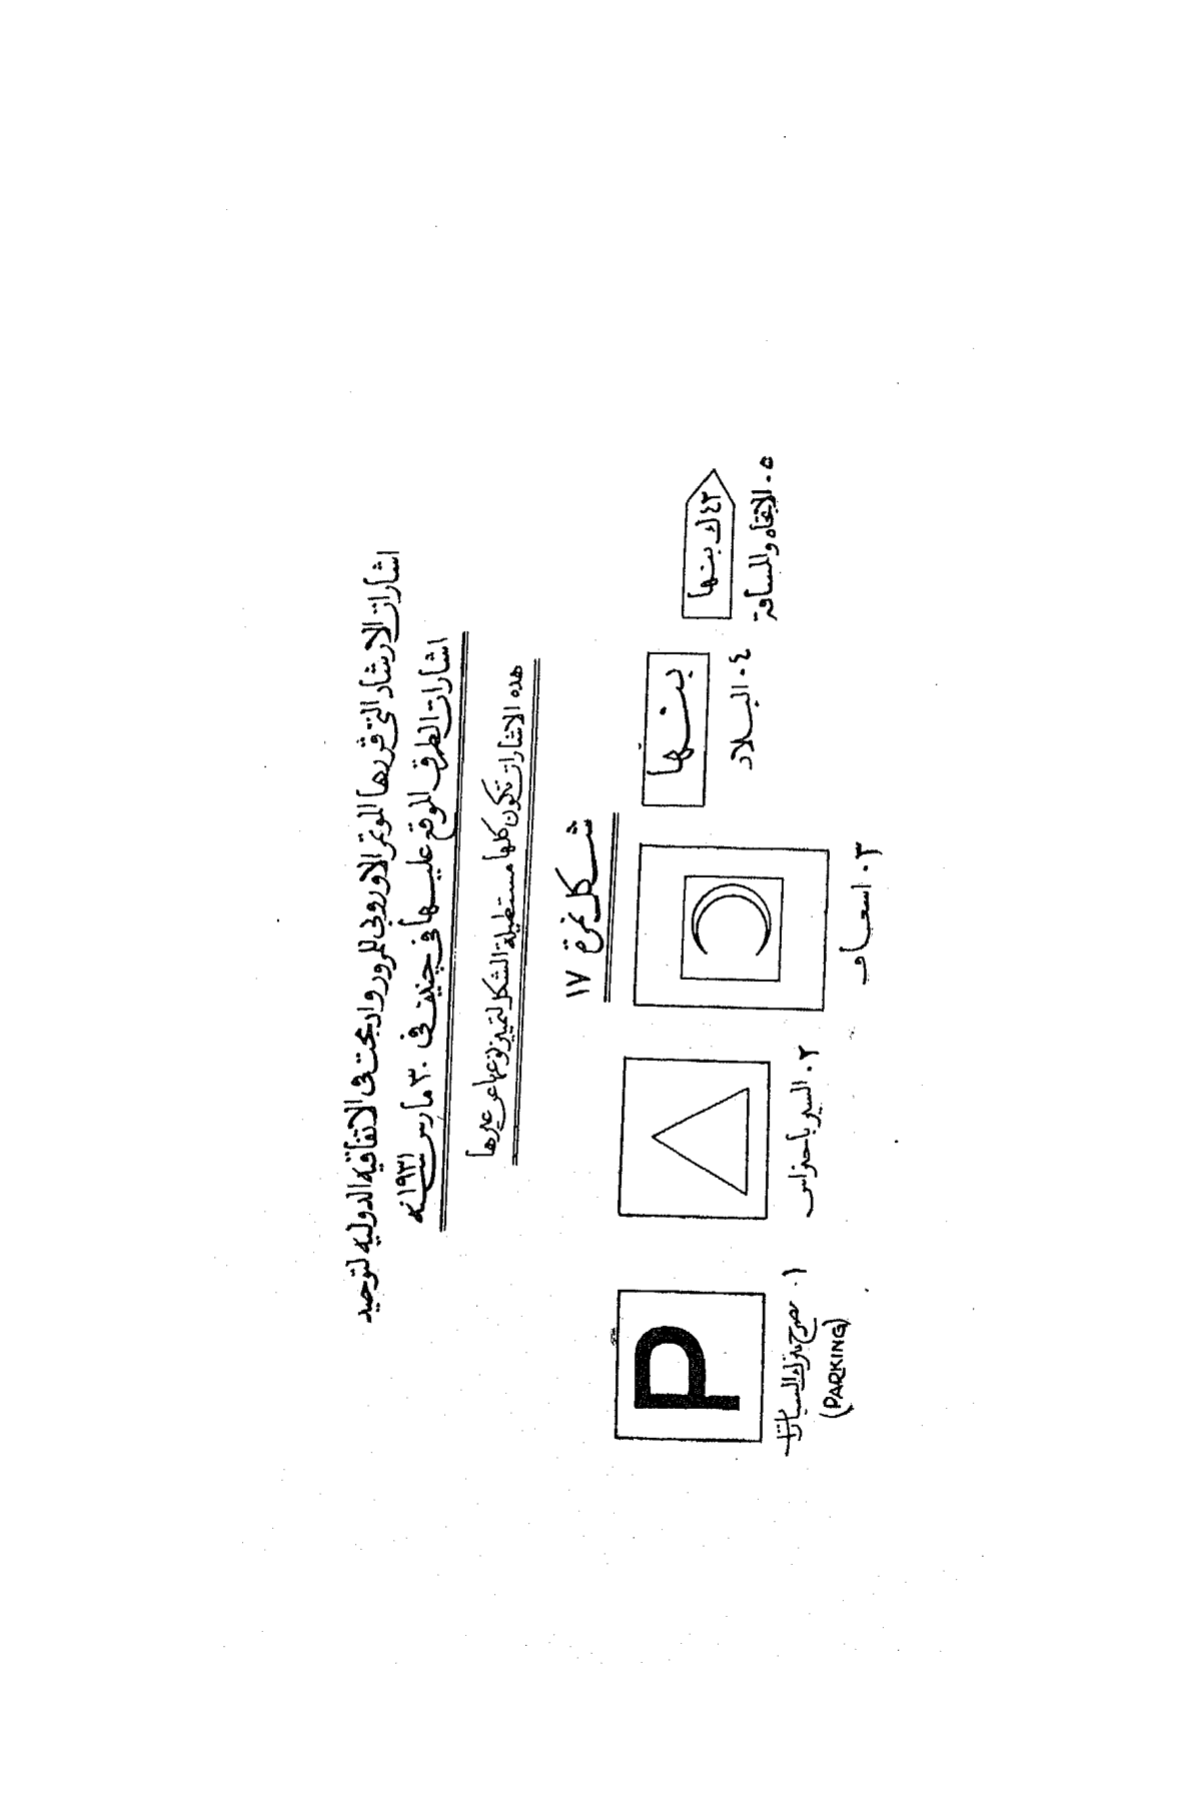 اشارات الارشاد التى قررها المؤتمر الاوروبى للمرور وادمجت فى الاتفاقيه الدوليه لتوحيد
اشارات الطرق الموقع عليها فى چنيف فى ٣٠ مارس سنة ١٩٣١
هذه الاشارات تكون كلها مستطيلة الشكل لتمييز نوعها عن غيرها
شكل نمرة ١٧
P
بنها
٤٣ ك بنها
١٠ يصرح بترك السيارات
(PARKING)
٢٠ السير باحتراس
٣٠ اسعاف
٤٠ البلاد
٥٠ الاتجاه والمسافة